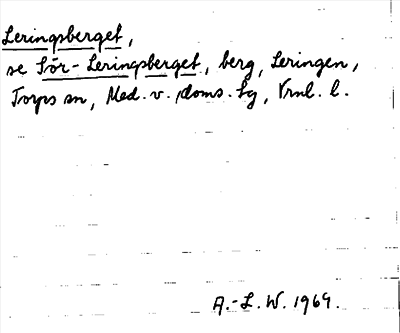 Leringsberget,
se Sör-Leringsberget, berg, Leringen,
Torps sn, Med. v. doms. lg, Vrnl. l.
A.-L. W. 1969.